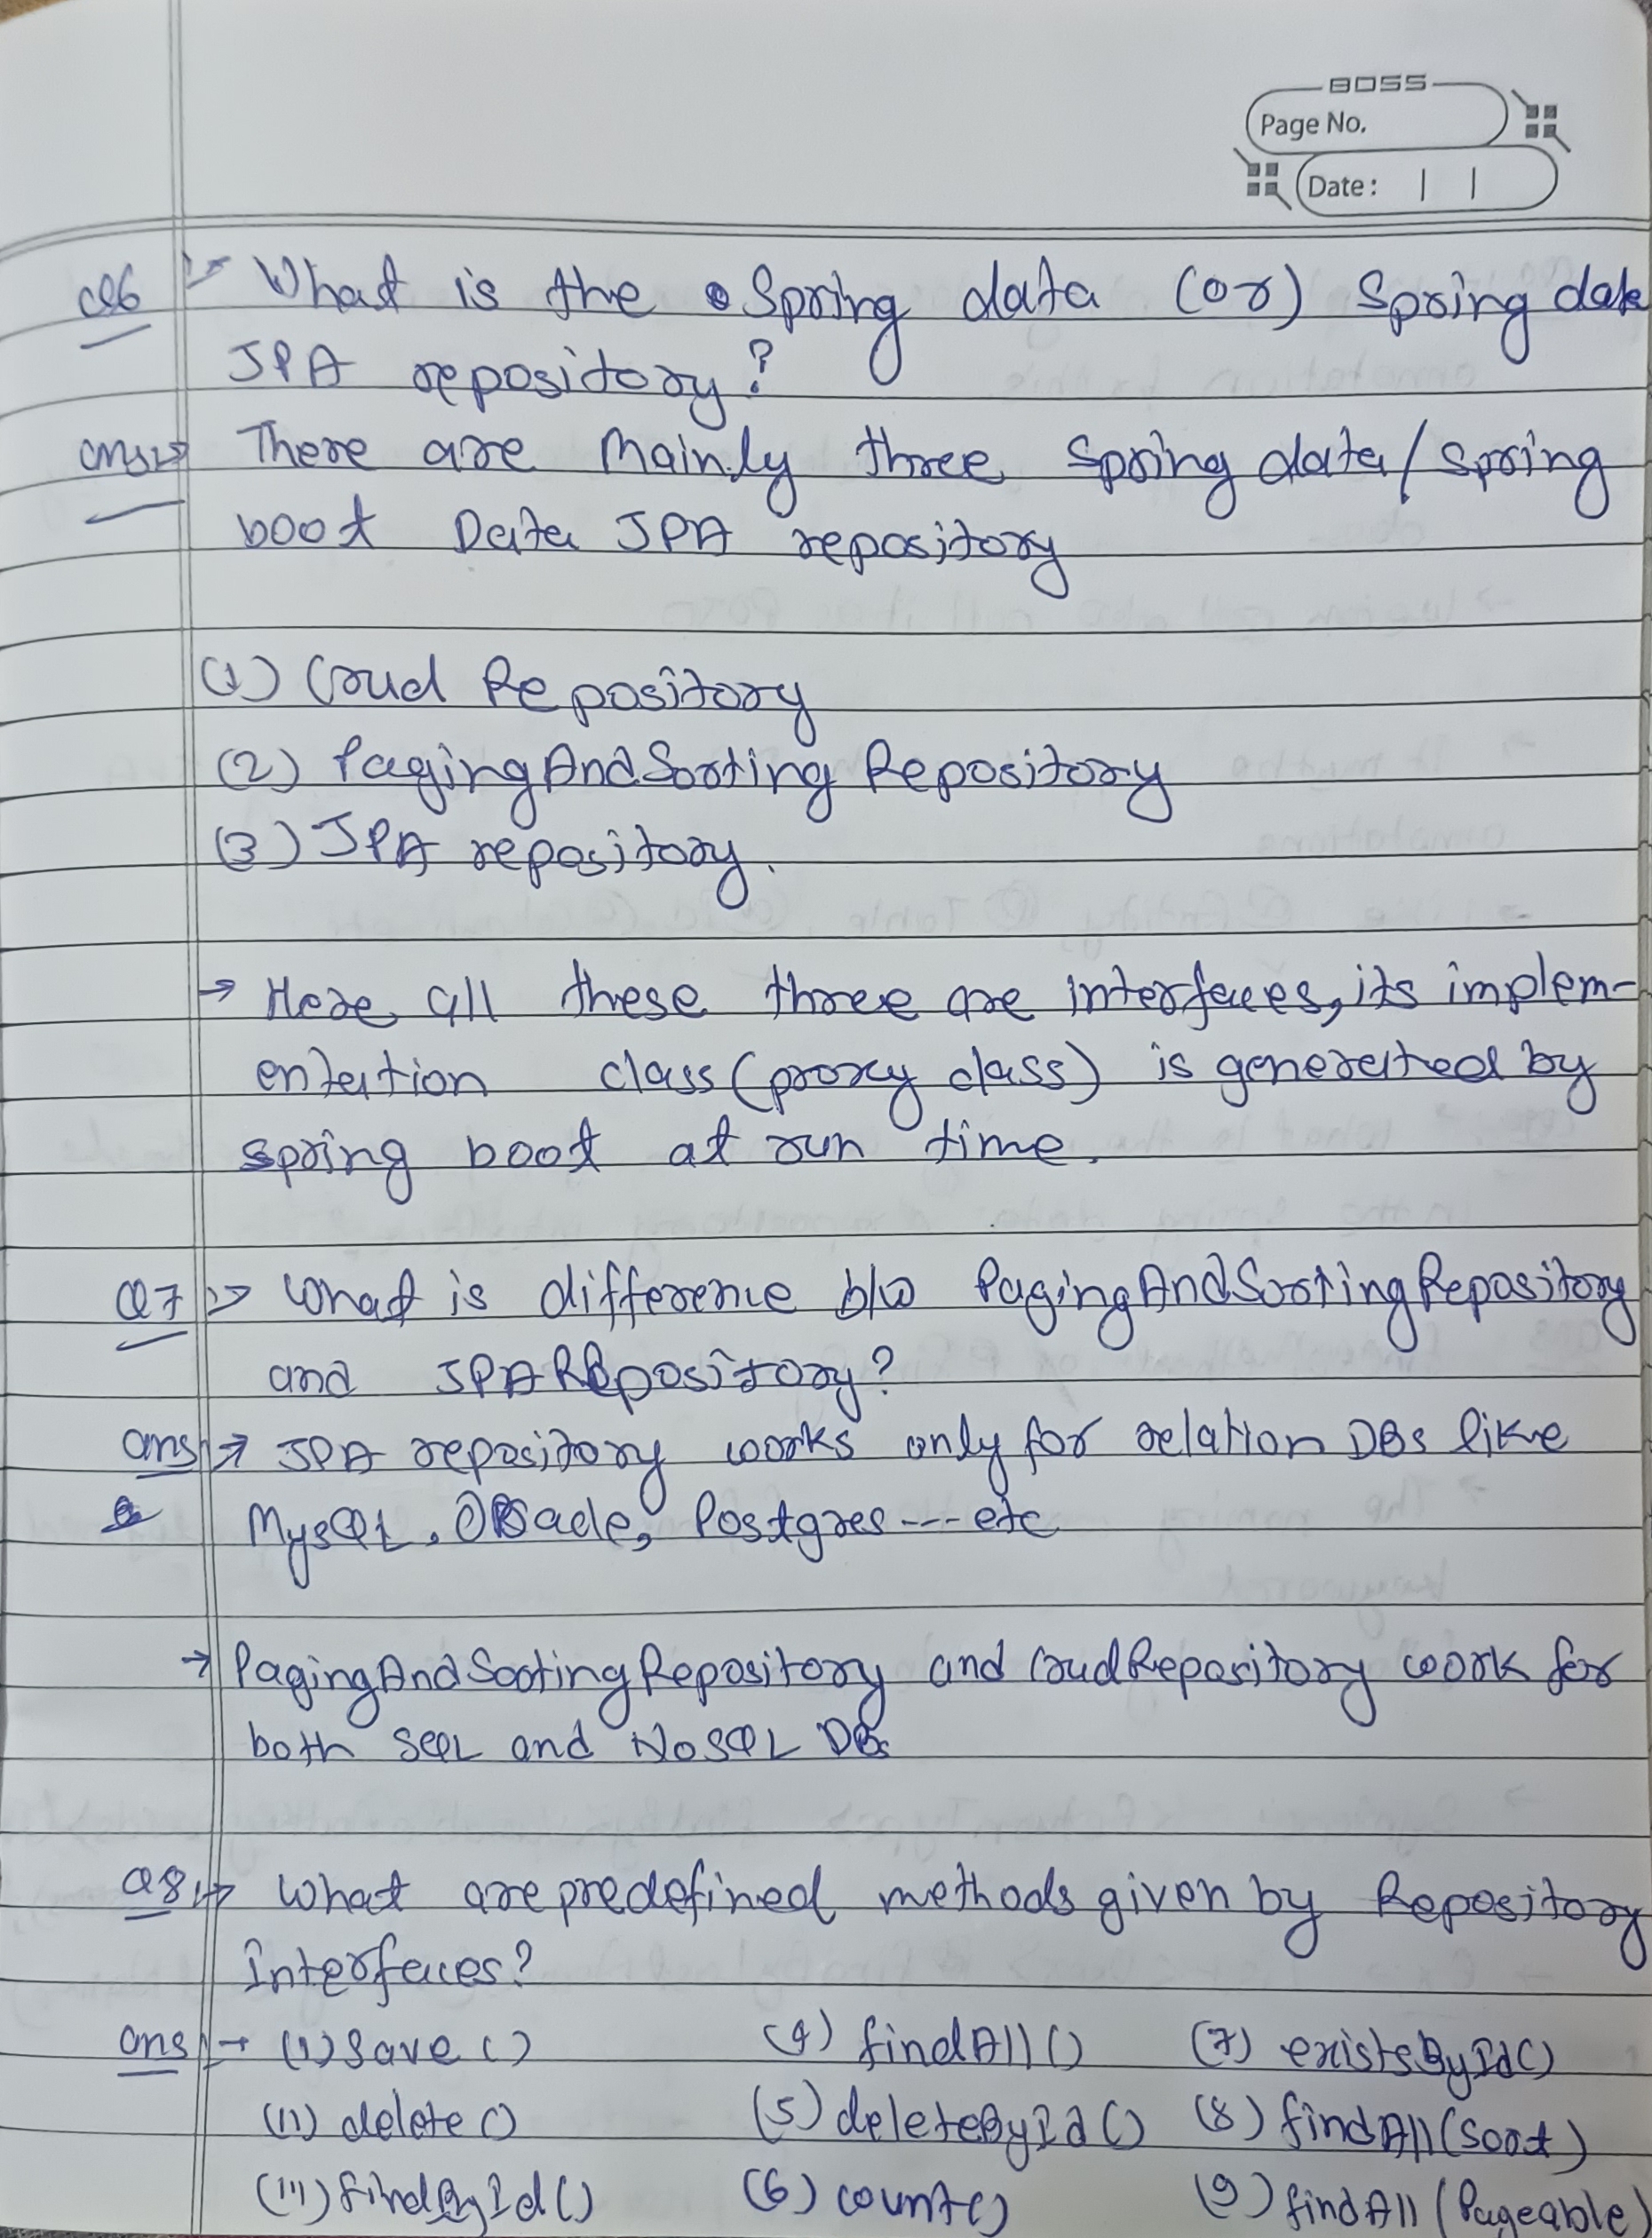 BOSS
Page No.
Date: | |
Q6 :- What is the Spring data (or) Spring data
JPA repository?
ans:-> There are mainly three, Spring data/spring
boot Data JPA repository
(1) Crud Repository
(2) PagingAndSorting Repository
(3) JPA repository.
→ Here all these three are interfaces, its implem-
entation class (proxy class) is generated by
spring boot at run time.
Q7 :-> What is difference b/w PagingAndSortingRepository
and JPARepository?
ans :→ JPA repository works only for relation DBs like
MySQL, Oracle, Postgres --- etc
→ PagingAndSortingRepository and CrudRepository work for
both SQL and NoSQL DBs
Q8 :→ What are predefined methods given by Repository
Interfaces?
ans :→ (1) save () (4) findAll () (7) existsById()
(11) delete () (5) deleteById () (8) findAll (Sort)
(111) findById () (6) count () (9) findAll (Pageable)